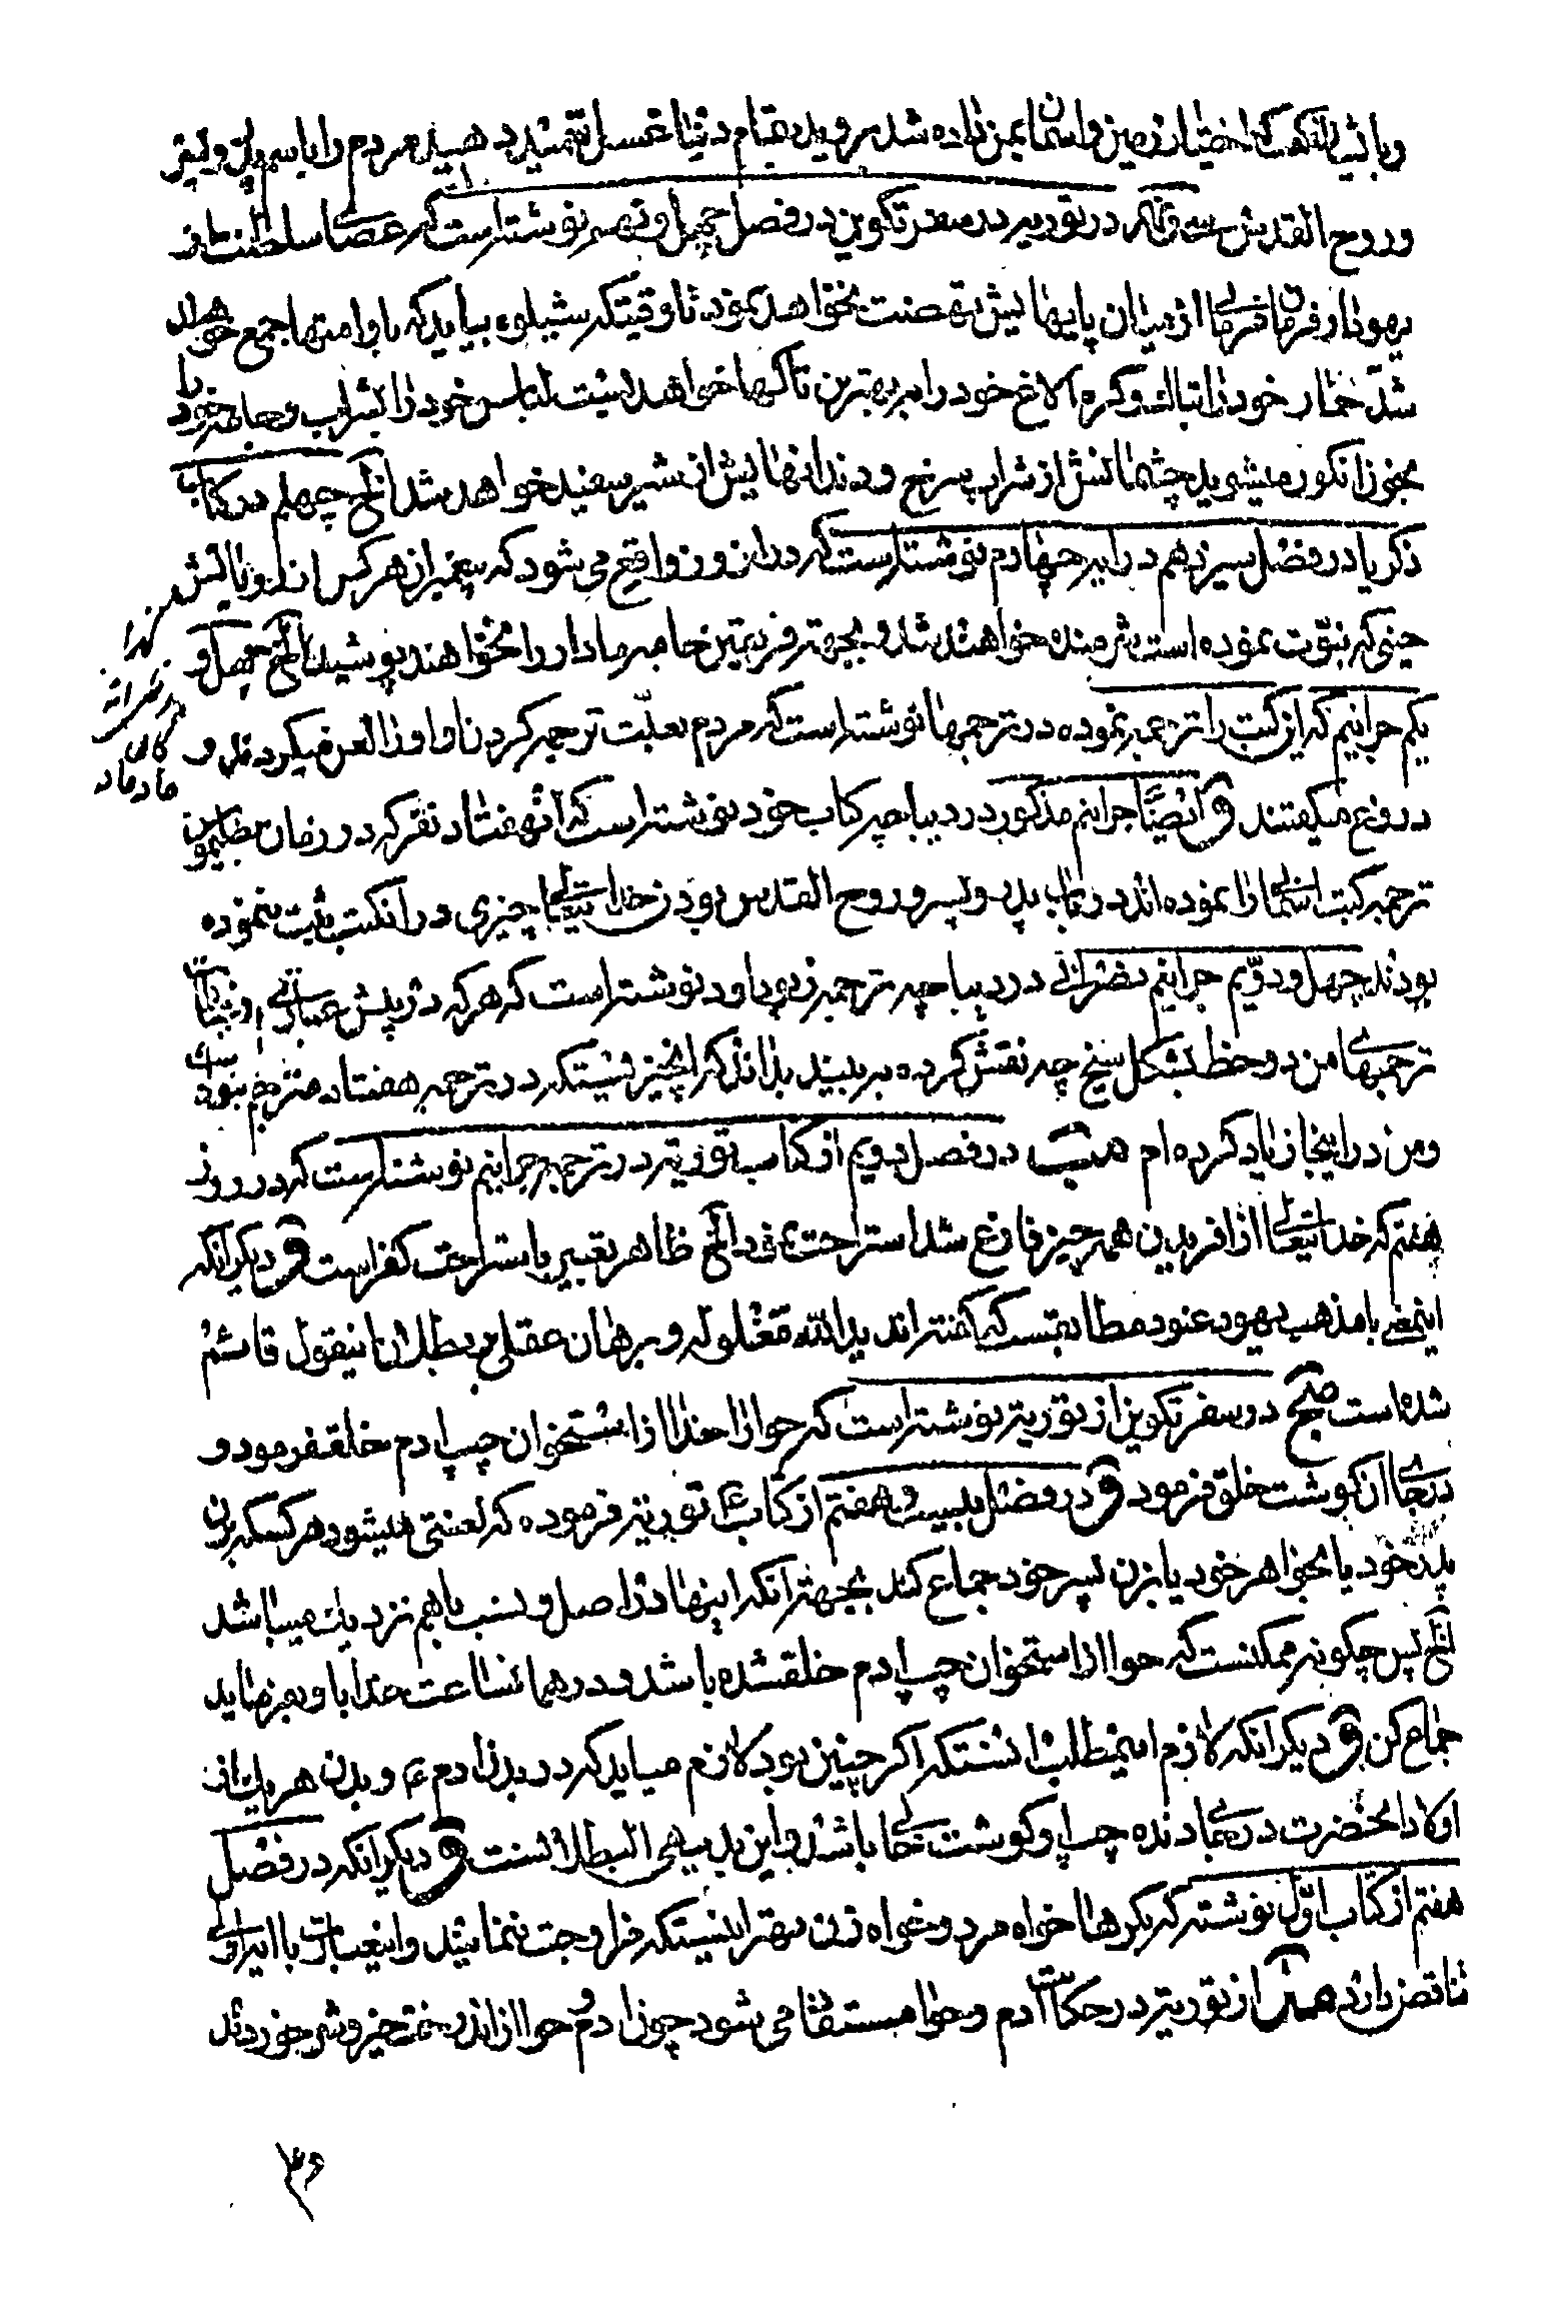 و با ایشان گفت که اختیار زمین و آسمان بمن داده شد بروید بتمام دنیا غسل تعمید دهید مردم را باسم پدر و پسر
و روح القدس سی و نهم در توریه در سفر تکوین در فصل چهل و نهم نوشته است که عصای سلطنت از
یهودا و فرمان فرمای از میان پایهایش نهضت نخواهد نمود تا وقتیکه شیلوه بیاید که باو امتها جمع خواهند
شد حمار خود را بتاک و کره الاغ خود را به بهترین تاکها خواهد بست لباس خود را بشراب و جامه خود را
بخون انکور میشوید چشمانش از شراب سرخ و دندانهایش از شیر سفید خواهد شد الخ چهلم در کتاب
ذکریا در فصل سیزدهم در ایه چهارم نوشته است که در ان روز واقع می شود که پیغمبران هر کس از رویایش
حینی که نبوت نموده است شرمنده خواهند شد و بجهة فریفتن جامه مادار را نخواهند پوشید الخ چهل و
یکم جرانیم که این کتب را ترجمه نموده در ترجمها نوشته است که مردم بعلت ترجمه کردن او را لعن میکردند و
دروغ میکفتند و ایضا جرانیم مذکور در دیباچه کتاب خود نوشته است که آن هفتاد نفر که در زمان بطلمیوس
ترجمه کتب اسمانی را نموده اند در باب پدر و پسر و روح القدس بودن خدایتعالی چیزی در انکتب ثبت ننموده
بودند چهل و دویم جرانیم نصرانی در دیباچه ترجمه زبور داود نوشته است که هر که در پیش عبارتی از عبارات
ترجمهای من دو خط بشکل سیخ چه نقش کرده به بیند بداند که انچیز نیستکه در ترجمه هفتاد مترجم نبوده است
و من در اینجا زیاد کرده ام در فصل دویم از کتاب توریة در ترجمه جرانیم نوشته است که در روز
هفتم که خدایتعالی از افریدن همه چیز فارغ شد استراحت نمود الخ ظاهر تعبیر باستراحت کفر است و دیکر انکه
اینمعنی با مذهب یهود عنود مطابقست که کفته اند ید الله مغلولة و برهان عقلی بر بطلان اینقول قائم
شده است در سفر تکوین از توریة نوشته است که حوا را خدا از استخوان چپ ادم خلق فرمود و
در جای ان کوشت خلق فرمود و در فصل بیست و هفتم از کتاب توریة فرموده که لعنتی میشود هر کسکه بزن
پدر خود یا بخواهر خود یا بزن پسر خود جماع کند بجهة انکه اینها در اصل و نسب باهم نزدیک میباشد
الخ پس چکونه ممکنست که حوا از استخوان چپ ادم خلقشده باشد و در همانساعت خدا باو بفرماید
جماع کن و دیکر انکه لازم اینمطلب انستکه اکر چنین بود لازم میاید که در بدن ادم ع و بدن هر یک از
اولاد انحضرت در جای دنده چپ کوشت بجا باشد و این بدیهی البطلانست و دیکر انکه در فصل
هفتم از کتاب اول نوشته که بکرها خواه مرد و خواه زن بهتر اینستکه مزاوجت ننمایند و اینعبارت با ایراوی
تناقض دارد از توریة در حکایت آدم و حوا مستفاد می شود چون ادم و حوا از ان درخت خیر و شر خوردند
نهرا